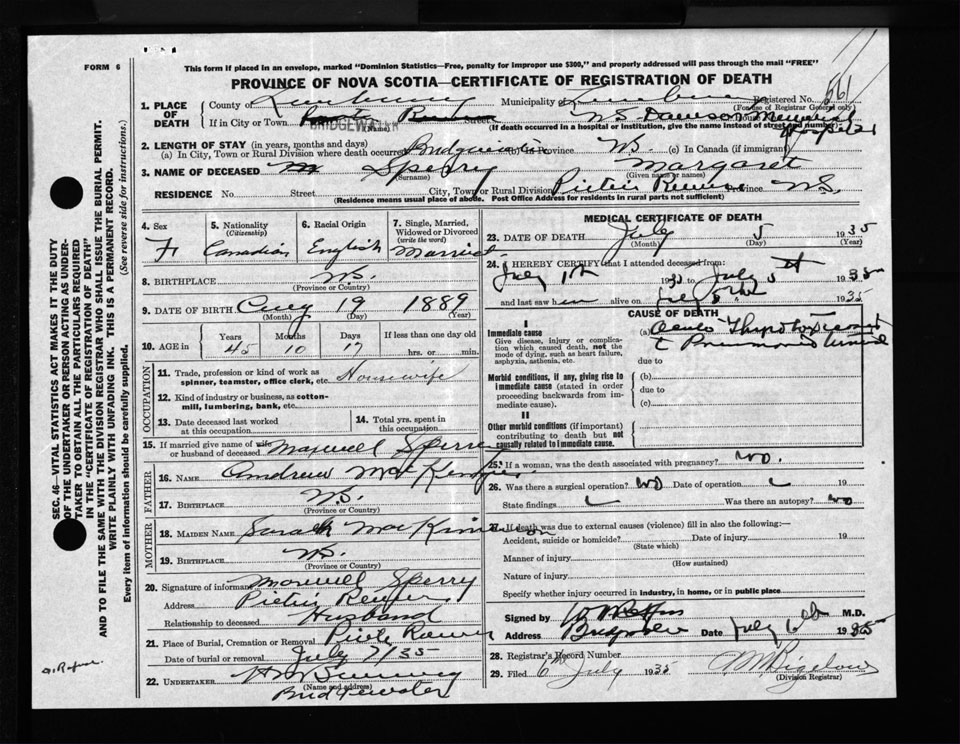 FORM 6
This form if placed in an envelope, marked "Dominion Statistics—Free, penalty for improper use $300," and properly addressed will pass through the mail "FREE"
PROVINCE OF NOVA SCOTIA—CERTIFICATE OF REGISTRATION OF DEATH
1. PLACE OF DEATH County of Lunenburg Municipality of Lunenburg Registered No. 561
(For use of Registrar General only)
If in City or Town BRIDGEWATER Street Dawson Memorial Hospital
(Name) (If death occurred in a hospital or institution, give the name instead of street and number)
2. LENGTH OF STAY (in years, months and days)
(a) In City, Town or Rural Division where death occurred Bridgewater (b) In Province NS. (c) In Canada (if immigrant)
3. NAME OF DECEASED Sperry Margaret
(Surname) (Given name or names)
RESIDENCE No. Street City, Town or Rural Division Province N.S.
(Residence means usual place of abode. Post Office Address for residents in rural parts not sufficient)
4. Sex F
5. Nationality (Citizenship) Canadian
6. Racial Origin English
7. Single, Married, Widowed or Divorced (write the word) Married
8. BIRTHPLACE NS.
(Province or Country)
9. DATE OF BIRTH Aug 19 1889
(Month) (Day) (Year)
10. AGE in Years Months Days If less than one day old
45 10 17 hrs. or min.
OCCUPATION
11. Trade, profession or kind of work as spinner, teamster, office clerk, etc. Housewife
12. Kind of industry or business, as cotton-mill, lumbering, bank, etc.
13. Date deceased last worked at this occupation
14. Total yrs. spent in this occupation
15. If married give name of wife or husband of deceased Maxwell Sperry
FATHER
16. NAME Andrew
17. BIRTHPLACE NS.
(Province or Country)
MOTHER
18. MAIDEN NAME Sarah MacKinnon
19. BIRTHPLACE NS.
(Province or Country)
20. Signature of informant Maxwell Sperry
Address
Relationship to deceased Husband
21. Place of Burial, Cremation or Removal
Date of burial or removal July 7/35
22. UNDERTAKER
(Name and address)
Bridgewater
MEDICAL CERTIFICATE OF DEATH
23. DATE OF DEATH July 5 1935
(Month) (Day) (Year)
24. I HEREBY CERTIFY that I attended deceased from:
July 1st 1935 to July 5th 1935
and last saw her alive on July 5th 1935
CAUSE OF DEATH
I
Immediate cause
Give disease, injury or complication which caused death, not the mode of dying, such as heart failure, asphyxia, asthenia, etc.
(a) Acute
due to
Morbid conditions, if any, giving rise to immediate cause (stated in order proceeding backwards from immediate cause).
(b)
due to
(c)
II
Other morbid conditions (if important) contributing to death but not causally related to immediate cause.
25. If a woman, was the death associated with pregnancy? No.
26. Was there a surgical operation? No Date of operation 19
State findings Was there an autopsy? No
27. If death was due to external causes (violence) fill in also the following:—
Accident, suicide or homicide? Date of injury 19
(State which)
Manner of injury
(How sustained)
Nature of injury
Specify whether injury occurred in industry, in home, or in public place
Signed by M.D.
Address Bridgewater Date July 6th 1935
28. Registrar's Record Number
29. Filed 6th July 1935
(Division Registrar)
SEC. 46—VITAL STATISTICS ACT MAKES IT THE DUTY
OF THE UNDERTAKER OR PERSON ACTING AS UNDER-
TAKER TO OBTAIN ALL THE PARTICULARS REQUIRED
IN THE "CERTIFICATE OF REGISTRATION OF DEATH"
AND TO FILE THE SAME WITH THE DIVISION REGISTRAR WHO SHALL ISSUE THE BURIAL PERMIT.
WRITE PLAINLY WITH UNFADING INK. THIS IS A PERMANENT RECORD.
Every item of information should be carefully supplied. (See reverse side for instructions.)